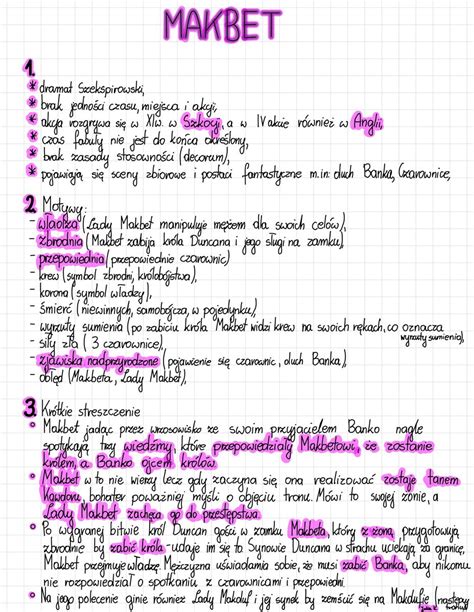 MAKBET
1.
* dramat Szekspirowski,
* brak jedności czasu, miejsca i akcji,
* akcja rozgrywa się w XIw. w Szkocji, a w IV akcie również w Anglii,
* czas fabuły nie jest do końca określony,
* brak zasady stosowności (decorum),
* pojawiają się sceny zbiorowe i postaci fantastyczne m.in: duch Banka, Czarownice,
2. Motywy:
- władza (Lady Makbet manipuluje mężem dla swoich celów),
- zbrodnia (Makbet zabija króla Duncana i jego sługi na zamku),
- przepowiednia (przepowiednie czarownic)
- krew (symbol zbrodni, królobójstwa),
- korona (symbol władzy),
- śmierć (niewinnych, samobójcza, w pojedynku),
- wyrzuty sumienia (po zabiciu króla Makbet widzi krew na swoich rękach, co oznacza
wyrzuty sumienia),
- siły zła (3 czarownice),
- zjawiska nadprzyrodzone (pojawienie się czarownic, duch Banka),
- obłęd (Makbeta, Lady Makbet),
3. Krótkie streszczenie
• Makbet jadąc przez wrzosowisko ze swoim przyjacielem Banko nagle
spotykają trzy wiedźmy, które przepowiedziały Makbetowi, że zostanie
królem, a Banko ojcem królów
• Makbet w to nie wierzy lecz gdy zaczyna się ona realizować zostaje tanem
Kawdoru, bohater poważniej myśli o objęciu tronu. Mówi to swojej żonie, a
Lady Makbet zachęca go do przestępstwa.
• Po wygranej bitwie król Duncan gości w zamku Makbeta, który z żoną przygotowują
zbrodnie by zabić króla - udaje im się to Synowie Duncana w strachu uciekają za granicę,
Makbet przejmuje władzę. Mężczyzna uświadamia sobie, że musi zabić Banka, aby nikomu
nie rozpowiedział o spotkaniu z czarownicami i przepowiedni.
• Na jego polecenie ginie również Lady Makduf i jej synek by zemścić się na Makdufie (następny